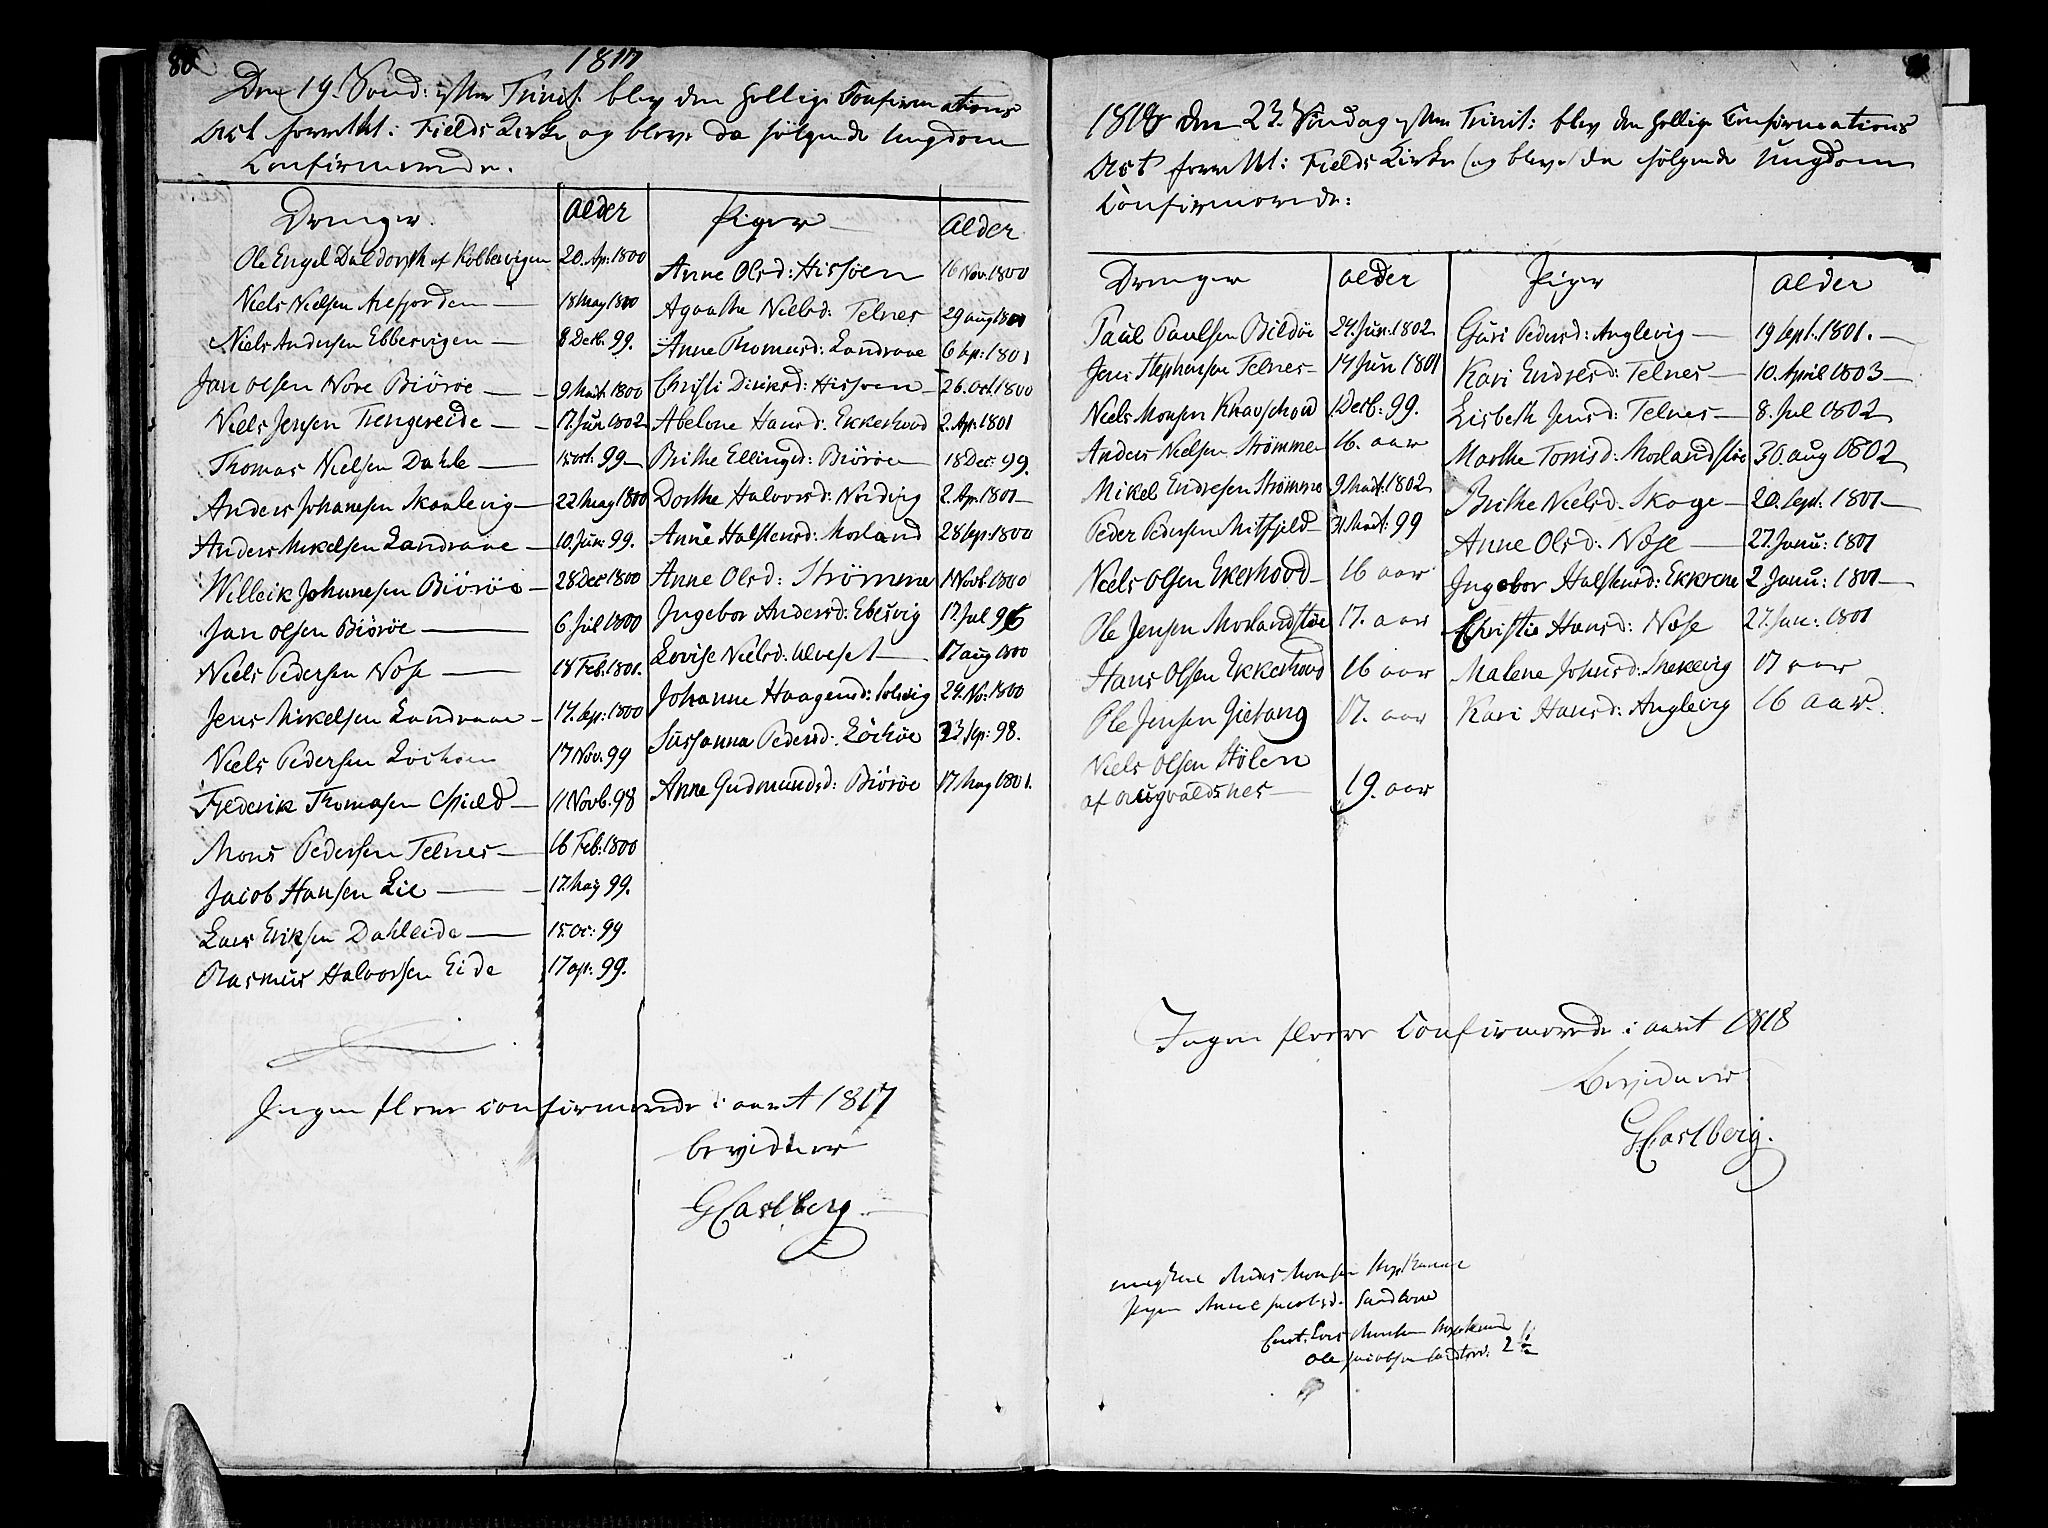 80
1817
Den 19. Sønd: efter Trinit. blev den hellige Confirmations
Act forrettet i Fields Kirke og bleve da følgende Ungdom
Confirmerede.
Drenge. Alder
Ole Engel Daldorph af Kobbervigen 20. Ap: 1800
Niels Nielsen Arefjorden 18 May 1800
Niels Andersen Ebbesvigen 8 Decb. 99.
Jan Olsen Nore Biørøe 9 Mart 1800
Niels Jensen Trengereide 17. Jun 1802
Thomas Nielsen Dahle 15 oct. 99
Anders Johanesen Skaalevig 22 May 1800
Anders Mikelsen Landraae 10. Jun: 99.
Willeik Johannesen Biørøe 28 Dec 1800
Jan Olsen Biørøe 6. Jul 1800
Niels Pedersen Nøse 18 Feb. 1801.
Jens Mikelsen Landraae 14. Sep: 1800
Niels Pedersen Lochøen 17 Nov. 99
Frederik Thomasen Spield 11 Novb. 98
Mons Pedersen Telnes 16 Feb: 1800
Jacob Hansen Lie 17. May 99.
Lars Eriksen Dahleide 15. Oc: 99
Rasmus Halvorsen Eide 17 ap: 99.
Piger Alder
Anne Olsd: Hissøen 16 Nov. 1800
Agaathe Nielsd: Telnes 29 aug 1801
Anne Thomasd: Landraae 6 Sep: 1801
Christi Diriksd: Hissøen 26. Oct. 1800
Abelone Hansd: Ekkerhovd 2. Ap: 1801
Brithe Ellingsd: Biørøe 18 Dec: 99.
Dorthe Halvorsd: Nordvig 2. Ap: 1801
Anne Halstensd: Morland 28 Sep: 1800
Anne Olsd: Strømme 1 Novb. 1800
Ingebor Andersd: Ebesvig 17. Jul 96
Lovise Nielsd: Ulveset 17 aug 1800
Johanne Haagensd: Solsvig 24. No: 1800
Sussanna Pedersd: Løchøe 23 Sep: 98.
Anne Gudmundsd: Biørøe 17 May 1801.
Ingen fleere confirmerede i aaret 1817
bevidner
G Carlberg
1818 den 23. Søndag efter Trinit: blev den hellige Confirmations
Act forrettet i Fields Kirke og bleve da følgende Ungdom
Confirmerede:
Drenge Alder
Paul Paulsen Bildøe 24. Jun: 1802
Jens Stephensen Telnes 14 Jun 1801
Niels Monsen Knapschow 1 Decb: 99.
Anders Nielsen Strømme 16. aar
Mikel Endresen Strømme 9 Mart: 1802
Peder Pedersen Mitfjeld 31 Mart: 99
Niels Olsen Ekerhovd 16 aar
Ole Jensen Morlandstøe 17. aar
Hans Olsen Ekkerhovd 16 aar
Ole Jensen Gietang 17. aar
Niels Olsen Hølen
af Augvaldsnes 19. aar
Piger Alder
Guri Pedersd: Anglevig 19 Sept. 1801.
Kari Endresd: Telnes 10. April 1803
Lisbeth Jensd: Telnes 8. Jul 1802
Marthe Tomisd: Morlandstøe 30. aug 1802
Brithe Nielsd. Skoge 20. Sept. 1801
Anne Olsd: Nøse 27. Janu: 1801
Ingebor Halstensd: Ekkrene 2 Janu: 1801
Christie Hansd: Nøse 27. Jan: 1801
Malene Johnsd: Snekevig 17 aar
Kari Hansd: Anglevig 16 aar.
Ingen fleere Confirmerede i aaret 1818
bevidner
G Carlberg.
Anders Monsen
Pigen Anne Jacobsd.
Ole Jacobsen